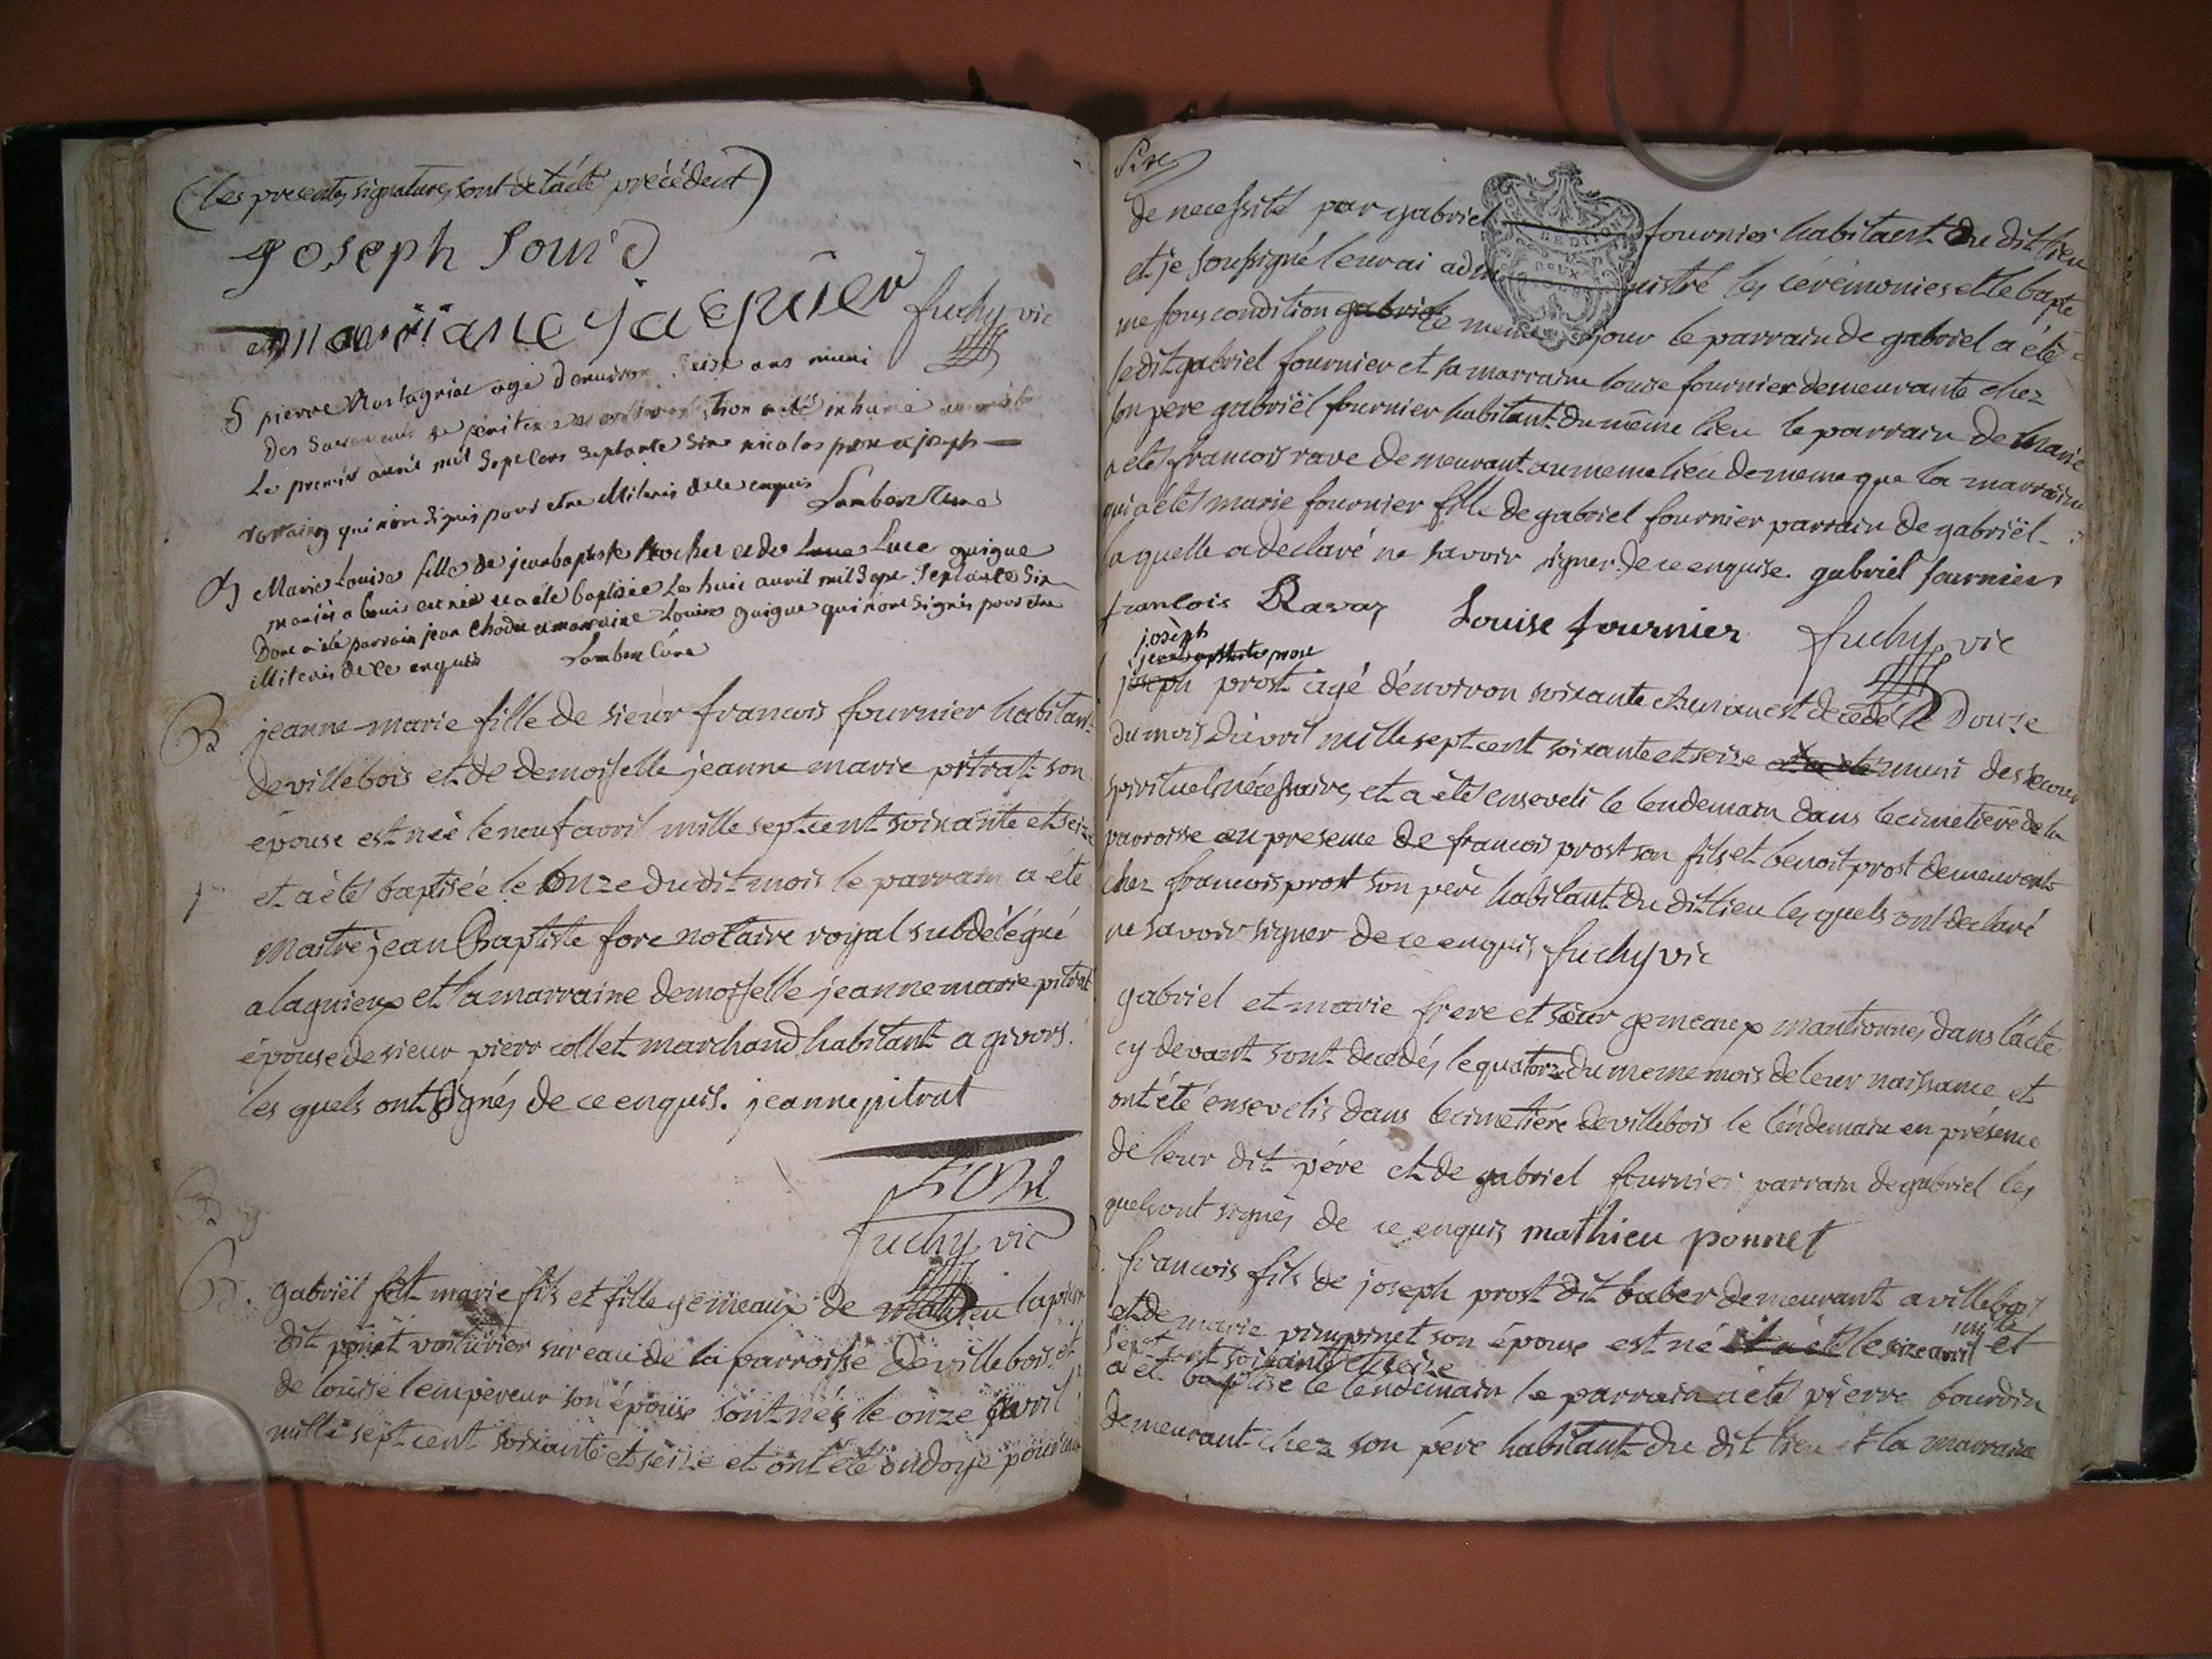 (les presentes signatures sont de l'acte précédent)
joseph Souid
marïiane jaquier fuchy vic
S pierre Rostagnat agé d'environ seise ans muni
des sacrements de penitence et a été inhumé
Le premier avril mil sept cens septante six nicolas prost et joseph
qui n'ont signés pour etre illiterés de ce enquis Lambert Curé
B Marie Louise fille de jean baptiste Rocher et de Luce guigue
mariés a bouis est née et a été baptisée Le huit avril mil sept septante six
Dont a été parrain jean Chodu et marraine Louise guigue qui n'ont signés pour etre
illiterés de ce enquis Lambert Curé
B jeanne-marie fille de sieur francois fournier habitant
de villebois et de demoiselle jeanne marie pitrat son
épouse est née le neuf avril mille sept cent soixante et seize
et a étés baptisée le onze du dit mois le parrain a été
maitre jean Baptiste fore notaire royal subdélégué
a lagnieux et la marraine demoiselle jeanne marie pitrat
épouse de sieur pierr collet marchand habitant a givors.
les quels ont signés de ce enquis. jeanne pitrat
fore
fuchy vic
B. gabriël et marie fils et fille gemeaux de mathieu lapierre
dit ponet voiturier sur eau de la parroisse de villebois et
de louise l'empereur son épouse sont nés le onze avril
mille sept cent soixante et seize et ont été ondoyé pour cause
de necessité par gabriel fournier habitant du dit lieu
et je soussigné leur ai administré les cérémonies et le bapte
me sous condition gabriel le meme jour le parrain de gabriel a étés
le dit gabriel fournier et sa marraine louise fournier demeurante chez
son pere gabriël fournier habitant du même lieu le parrain de marie
a étés francois rave demeurant au meme lieu de meme que la marraine
qui a étés marie fournier fille de gabriel fournier parrain de gabriël
la quelle a declaré ne savoir signer de ce enquise. gabriel fournier
francois Ravaz Louise fournier fuchy vic
joseph
joseph prost agé d'environ soixante et un an est decedé le Douze
du mois d'avril mille sept cent soixante et seize et a été muni des secours
spirituels nécessaires et a étés enseveli le lendemain dans le cimetiere de la
parroisse en presence de francois prost son fils et benoit prost demeurants
chez francois prost son père habitant du dit lieu les quels ont declaré
ne savoir signer de ce enquis fuchy vic
gabriel et marie frere et sœur gemeaux mantionnés dans l'acte
cy devant sont decedés le quatorze du meme mois de leur naissance et
ont été ensevelis dans le cimetiére de villebois le lendemain en présence
de leur dit pére et de gabriel fournier parrain de gabriel les
quels ont signés de ce enquis mathieu ponnet
francois fils de joseph prost dit baber demeurant a villebois
et de marie pimpinet son épouse est né et a été le size avril mille
sept cent soixante et seize et
a été baptisé le lendemain le parrain a étés pierre bourdin
demeurant chez son pére habitant du dit lieu et la marraine